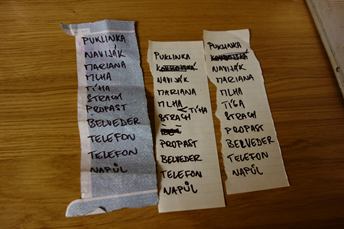 PUKLINKA
NAVIJÁK
MARIANA
MLHA
TÍHA
STRACH
PROPAST
BELVEDER
TELEFON
TELEFON
NAPŮL
PUKLINKA
NAVIJÁK
MARIANA
MLHA
TÍHA
STRACH
PROPAST
BELVEDER
TELEFON
NAPŮL
PUKLINKA
NAVIJÁK
MARIANA
MLHA
TÍHA
STRACH
PROPAST
BELVEDER
TELEFON
NAPŮL